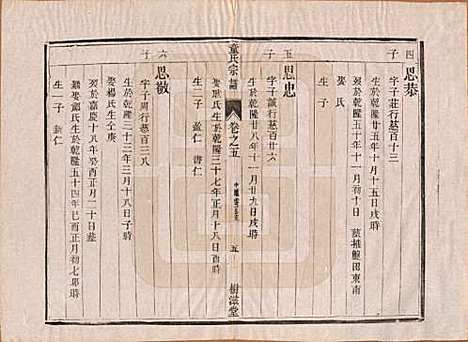 四子
思恭
字子莊行慈百十三
生於乾隆廿五年十月十五日戌時
歿於乾隆五十年十一月初十日 墓猫盤田東南
娶氏
五子
思忠
字子誠行慈百廿六
生於乾隆廿八年十一月廿九日戌時
娶 氏生於乾隆三十七年正月十八日酉時
生二子 啟仁 壽仁
童氏宗譜
卷之五
五
樹滋堂
六子
思敬
字子周行慈百三八
生於乾隆三十三年三月十八日子時
歿於嘉慶十八年癸酉正月二十日
娶楊氏生全庚
娶鄭氏生於乾隆五十四年己酉正月初七卯時
生一子 新仁